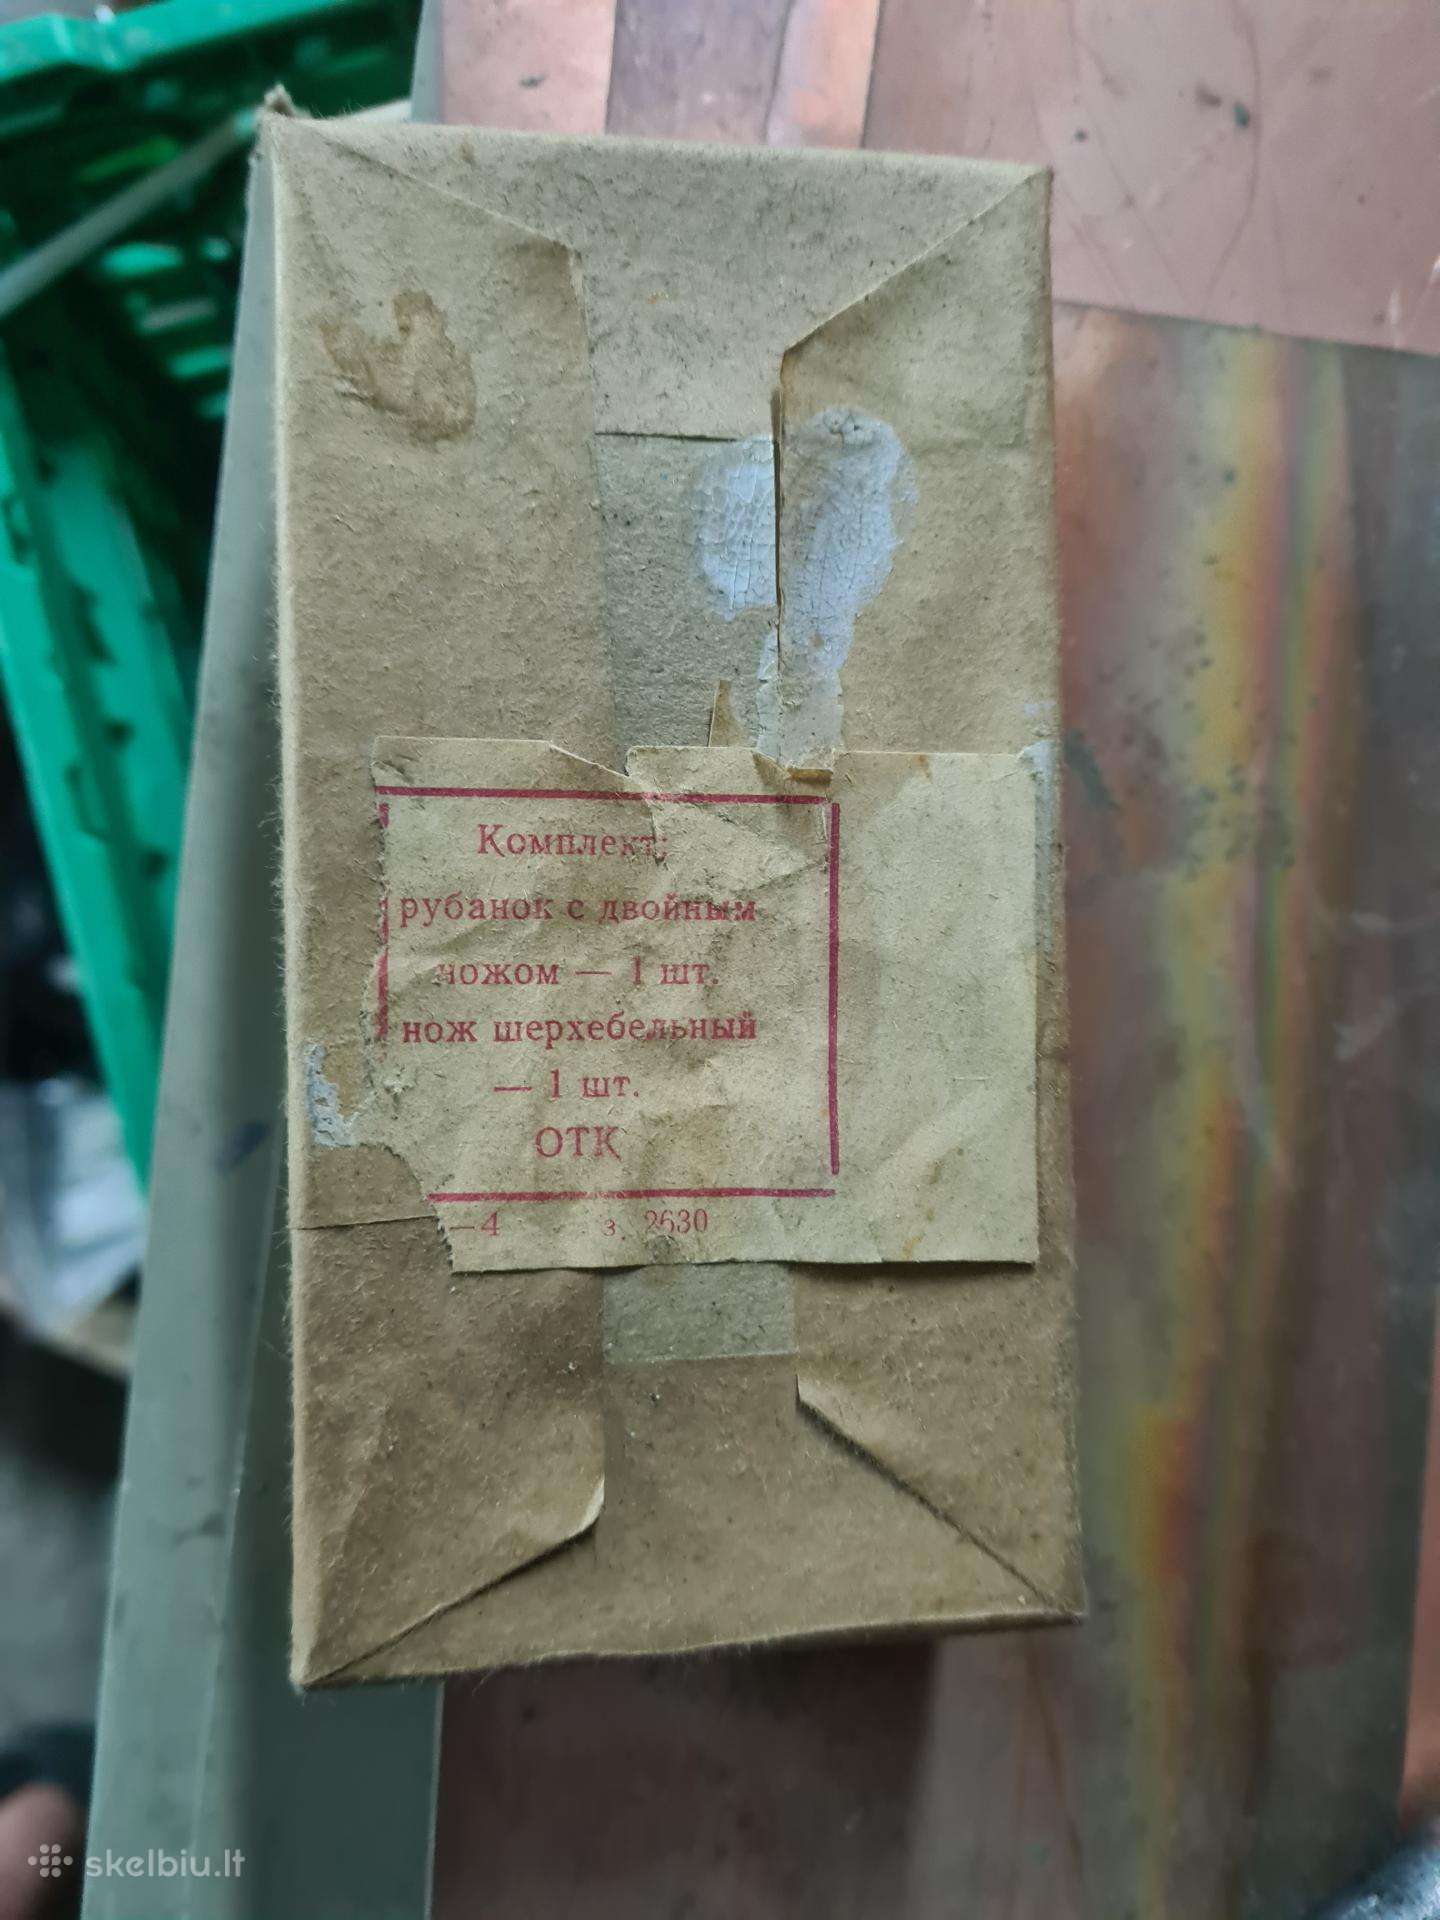 Комплект:
рубанок с двойным
ножом — 1 шт.
нож шерхебельный
— 1 шт.
ОТК
—4 з. 2630
skelbiu.lt